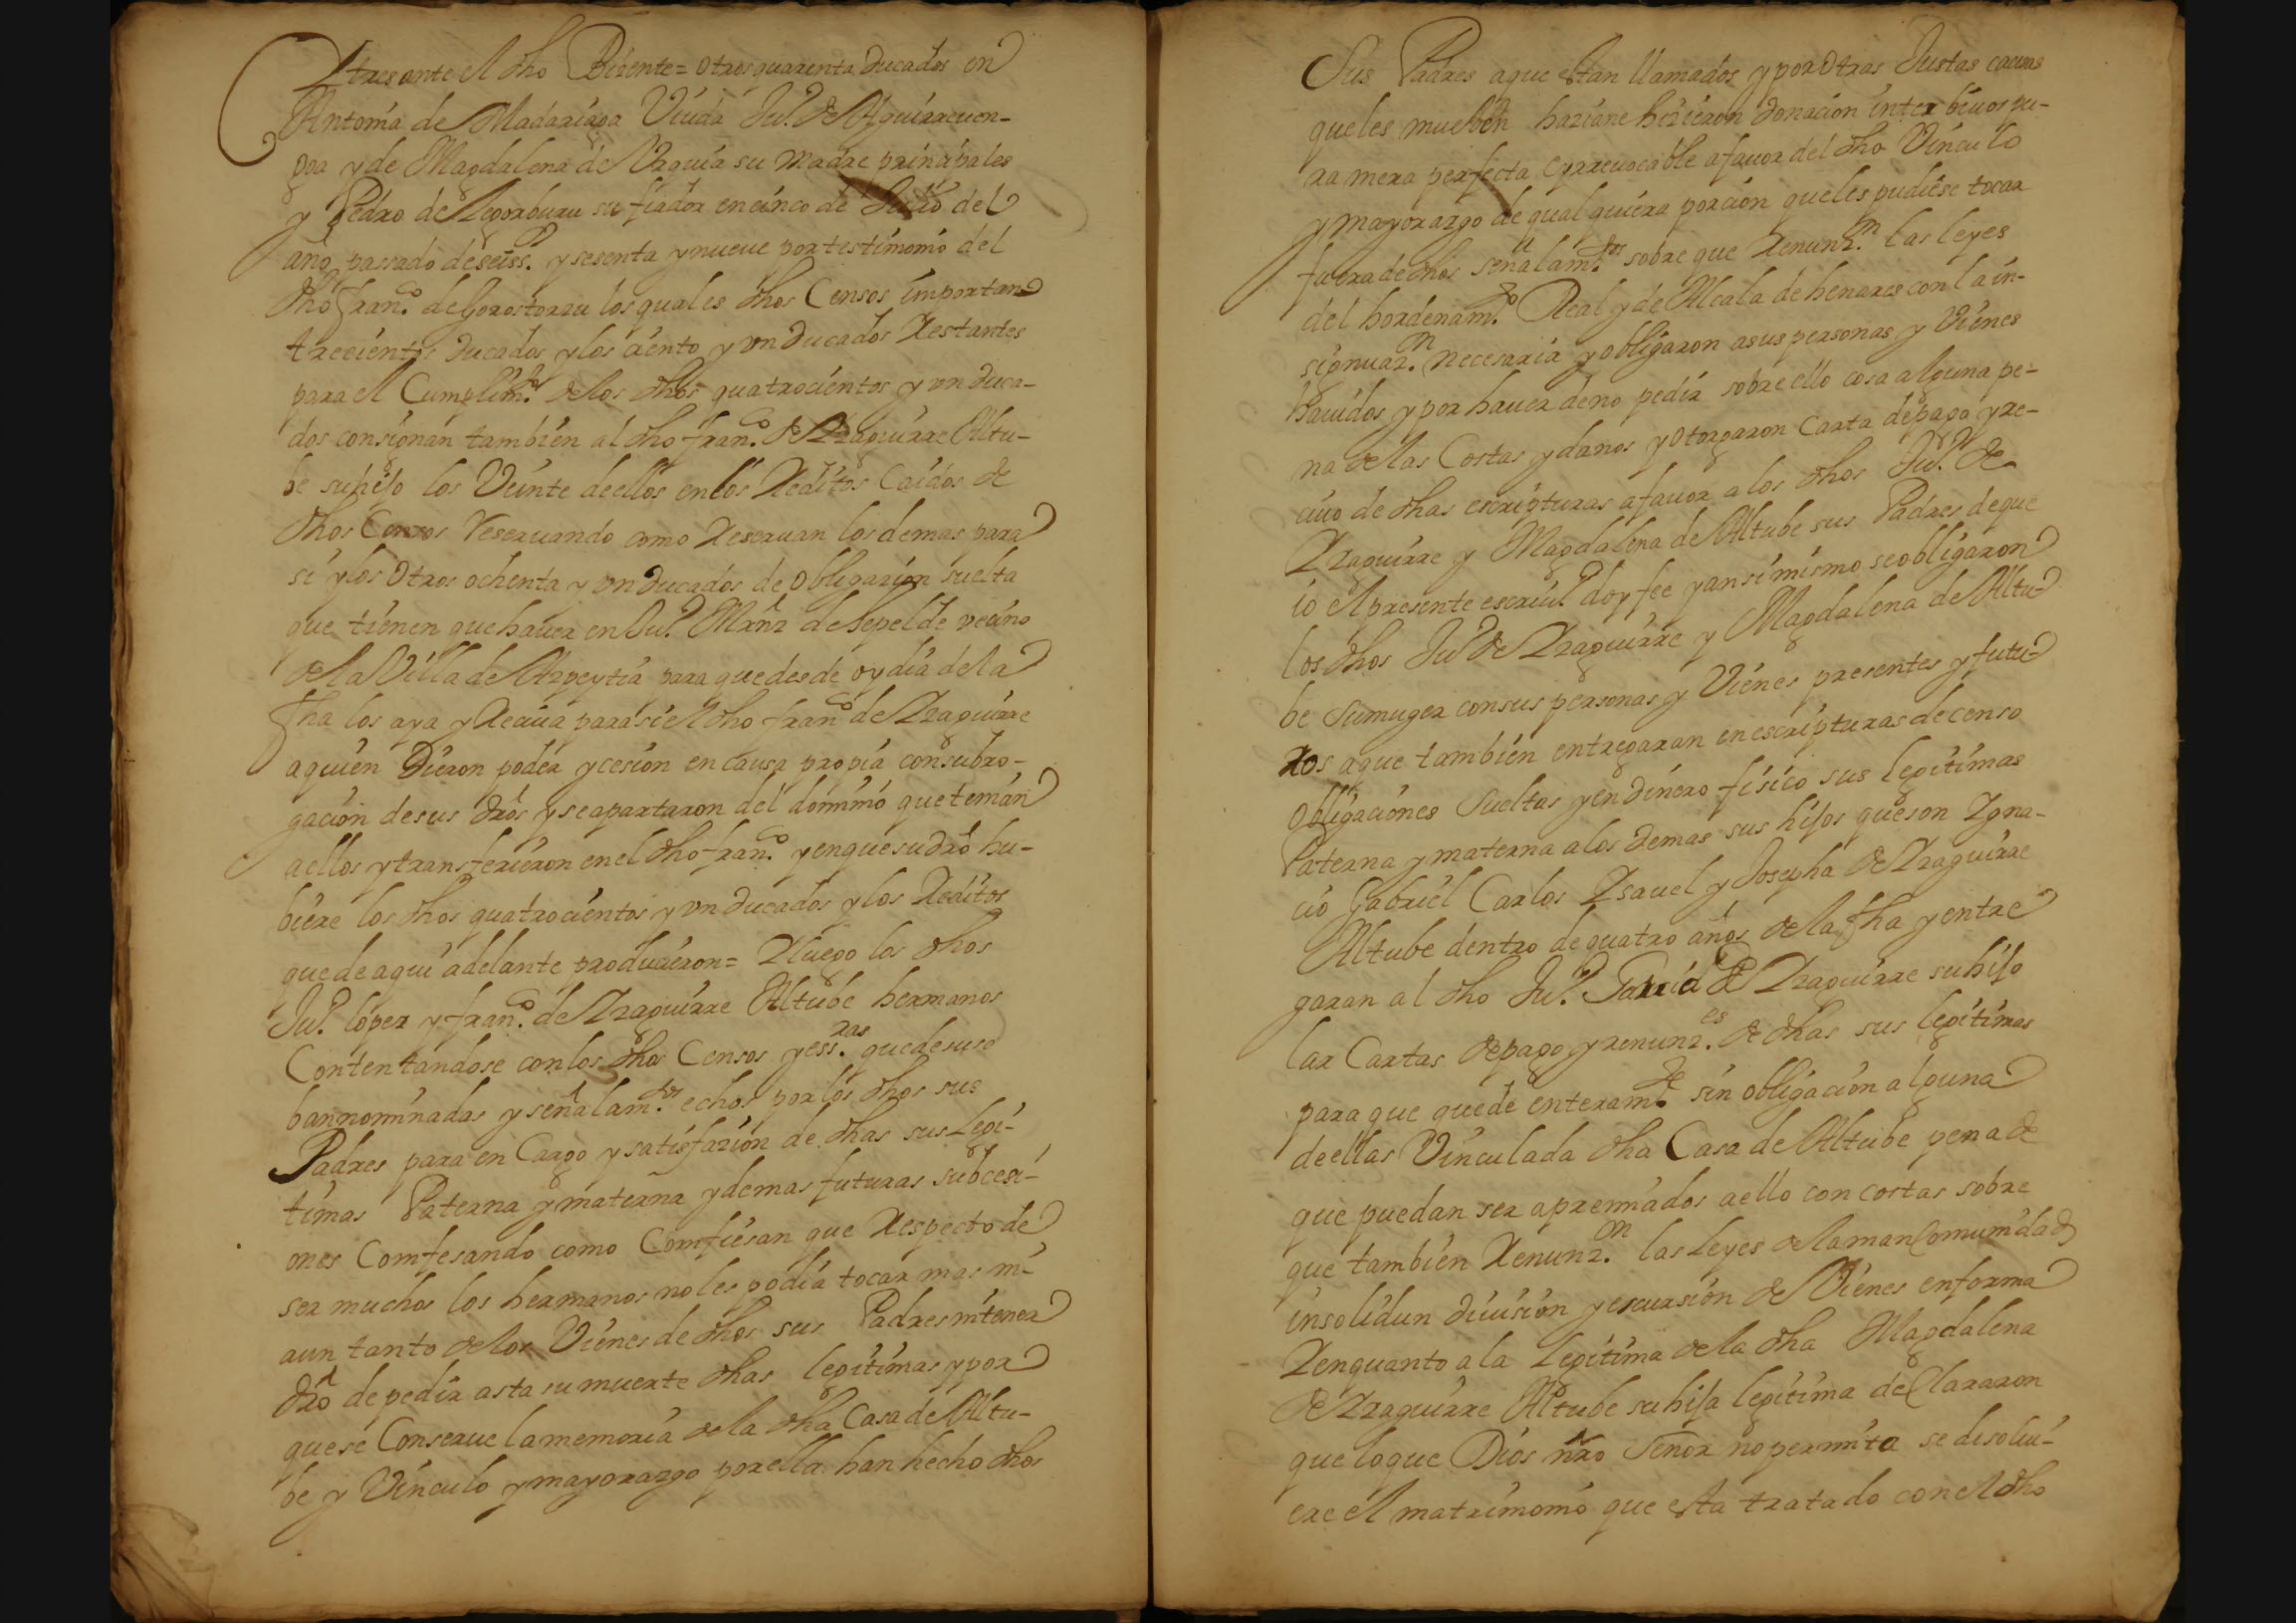 Y tres ante el dho Bicente = otros quarenta ducados en
Antonia de Madariaga Viuda Ju.º de Aguirreuen-
goa y de Magdalena de Vrquia su madre prinçipales
y Pedro de Legorburu su fiador en cinco de Julio del
año passado de seiss.º y sesenta y nueue por testimonio del
dho fran.co de Gorostorzu los quales dhos Censos importan
trecientos ducados y los ciento y vn ducados Restantes
para el Cumplim.to de los dhos quatrocientos y vn duca-
dos consignan tambien al dho fran.co de Yraguirre Altu-
be su hijo los Veinte de ellos en los Reditos Caidos de
dhos Censos reseruando como Reseruan los demas para
si y los otros ochenta y vn ducados de obligazion suelta
que tienen que hauer en Ju.º Mrnz de Sepelde vecino
de la Villa de Azpeytia para que desde oy dia de la
fha los aya y Reciua para si el dho fran.co de Yraguirre
a quien Dieron poder y cesion en causa propia con subro-
gacion de sus dros y se apartaron del dominio que tenian
a ellos y transferieron en el dho fran.co y en que su dro hu-
biere los dhos quatrocientos y vn ducados y los Reditos
que de aqui adelante produxieron = Y luego los dhos
Ju.º lopez y fran.co de Yraguirre Altube hermanos
Contentandose con los dhos Censos y ess.ras que de suso
ban nominadas y señalam.tos echos por los dhos sus
Padres para en Cargo y satisfazion de dhas sus Legi-
timas Paterna y materna y demas futuras subcesi-
ones Comfesando como Comfiesan que Respecto de
ser muchos los hermanos no les podia tocar mas ni
aun tanto de los Vienes de dhos sus Padres ni tener
dro de pedir asta su muerte dhas legitimas y por
que se Conserue la memoria de la dha Casa de Altu-
be y Vinculo y mayorazgo por ella han hecho dhos
Sus Padres a que estan llamados y por otras Justas causas
que les mueben hazian e hizieron donacion inter biuos pu-
ra mera perfecta e yrreuocable a fauor del dho Vinculo
y mayorazgo de qual quiera porcion que les pudiese tocar
fuera de dhos señalam.tos sobre que Renunz.on las leyes
del hordenam.to Real y de Alcala de henares con la in-
signuaz.on necesaria y obligaron a sus personas y Vienes
hauidos y por hauer de no pedir sobre ello cosa alguna pe-
na de las Costas y danos y otorgaron Carta de pago y re-
ciuo de dhas escripturas a fauor a los dhos Ju.º de
Yraguirre y Magdalena de Altube sus Padres de que
io el presente escriu.º doy fee y ansimismo se obligaron
los dhos Ju.º de Yraguirre y Magdalena de Altu-
be su muger con sus personas y Vienes presentes y futu-
ros a que tambien entregaran en escripturas de censo
obligaciones sueltas y en dinero fisico sus legitimas
Paterna y materna a los demas sus hijos que son Ygna-
cio Gabriel Carlos Ysauel y Josepha de Yraguirre
Altube dentro de quatro años de la fha y entre
garan al dho Ju.º Garcia de Yraguirre su hijo
las Cartas de pago y renunz.es de dhas sus legitimas
para que quede enteram.te sin obligacion alguna
de ellas Vinculada dha Casa de Altube pena de
que puedan ser apremiados a ello con costas sobre
que tambien Renunz.on las Leyes de la mancomunidad
insolidun diuision y escursion de Vienes en forma
Y en quanto a la Legitima de la dha Magdalena
de Yraguirre Altube su hija legitima declararon
que lo que Dios nro Señor no permita se disolui-
ere el matrimonio que esta tratado con el dho